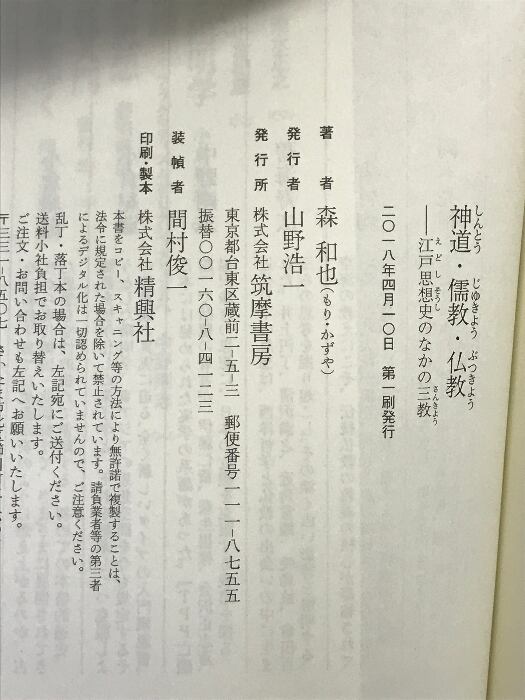 神道・儒教・仏教
――江戸思想史のなかの三教
二〇一八年四月一〇日 第一刷発行
著者 森 和也(もり・かずや)
発行者 山野浩一
発行所 株式会社 筑摩書房
東京都台東区蔵前二-五-三 郵便番号一一一-八七五五
振替〇〇一六〇-八-四一二三
装幀者 間村俊一
印刷・製本 株式会社 精興社
本書をコピー、スキャニング等の方法により無許諾で複製することは、
法令に規定された場合を除いて禁止されています。請負業者等の第三者
によるデジタル化は一切認められていませんので、ご注意ください。
乱丁・落丁本の場合は、左記宛にご送付ください。
送料小社負担でお取り替えいたします。
ご注文・お問い合わせも左記へお願いいたします。
〒三三一-八五〇七